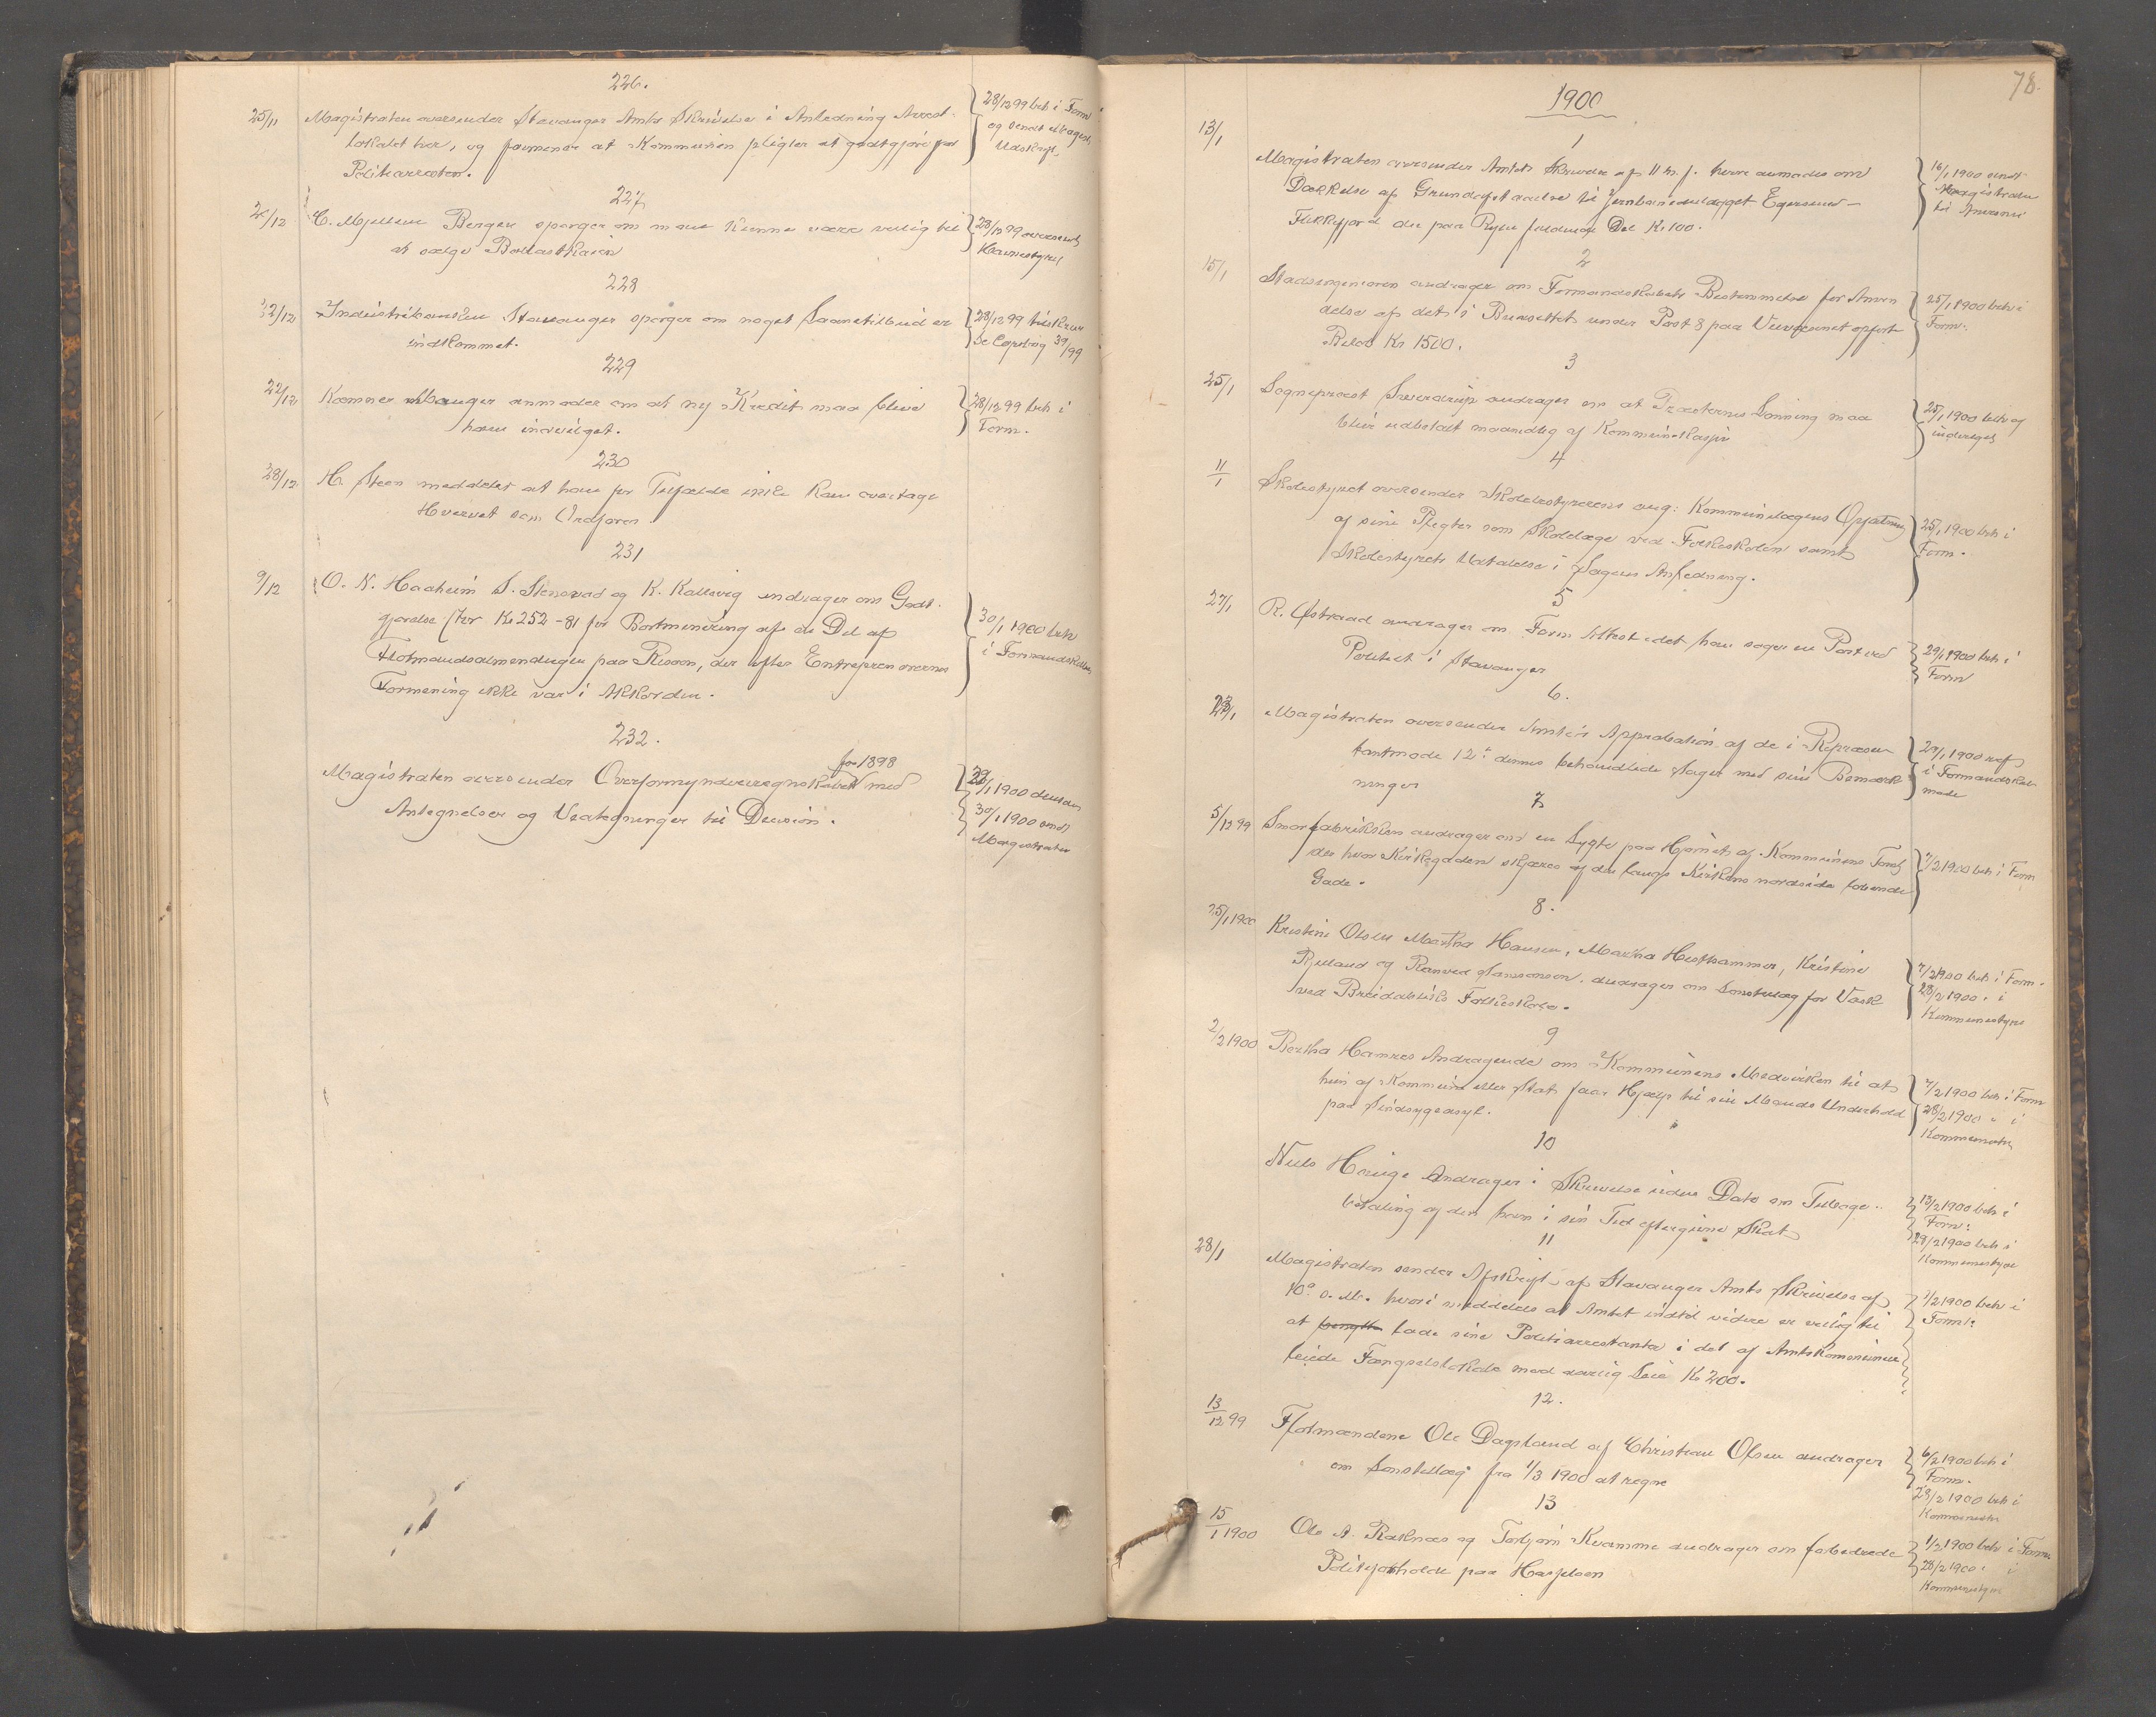 226.
25/11 Magistraten oversender Stavanger Amts Skrivelse i Anledning Arrest-
lokalet her, og formener at Kommunen pligter at godtgjøre for
Politiarresten.
28/12 99 beh i Form
og sendt Magistr.
Udskrift
227
C. Mjelleu Bergen spørger om man kunne være villig til
at sælge Ballastkaien
28/12 99 oversendt
Havnestyret
228
22/12 Industribanken Stavanger spørger om noget Laanetilbud er
indkommet.
28/12 99 tilskrev
Se Copibog 39/99
229
22/12 Kæmner Mauger anmoder om at ny Kredit maa blive
ham indvilget.
28/12 99 beh i
Form.
230
28/12 H. Steen meddeler at han for Tilfælde ikke kan overtage
Hvervet som Ordfører
231
9/12 O. N. Haaheim S. Stensvad og K. Kallevig andrager om Godt-
gjørelse stor Kr 252-81 for Bortminering af en Del af
Flotmandsalmendingen paa Risøen, der efter Entreprenørernes
Formening ikke var i Akkorden.
30/1 1900 beh
i Formandskabet
232.
for 1898
Magistraten oversender Overformynderregnskabet med
Antegnelser og Usategninger til Decision.
1900
30/1 1900 sendt
Magistraten
78.
1900
1
13/1
Magistraten oversender Amtets Skrivelse af 11 h. j. hvori anmodes om
Dækkelse af Grundafstaaelse til Jernbaneanlægget Egersund-
Flekkefjord den paa Byen faldende Del Kr 100.
16/1 1900 sendt
Magistraten
til
2
15/1 Stadsingeniøren andrager om Formandskabets Bestemmelse for Anven
delse af det i Budgettet under Post 8 paa Veivæsenet opført
Beløb Kr 1500.
25/1 1900 beh i
Form.
3
25/1 Sogneprest Sverdrup andrager om at Præsternes Lønning maa
blive udbetalt maanedlig af Kommunekassen
25/1 1900 beh og
indvilget
4
11/1 Skolestyret oversender Skoledirektørens ang: Kommunelægens Opfatning
af sine Pligter som Skolelæge ved Folkeskolen samt
Skolestyrets Udtalelse i Sagens Anledning.
25/1 1900 beh i
Form.
5
27/1 R. Østraad andrager om Form Attest idet han søger en Post ved
Politiet i Stavanger
29/1 1900 beh i
Form
6.
Magistraten oversender Amtets Approbation af de i Repræsen
tantmøde 12te dennes behandlede Sager med sine Bemærk
ninger
29/1 1900 ref
i Formandskabs
møde
7
5/12 99 Smørfabrikken andrager om en Lygte paa Hjørnet af Kommunens Tomt
der hvor Kirkegaden skjæres af den langs Kirkens nordside løbende
Gade.
7/2 1900 beh i Form
8.
25/1 1900 Kristine Olsen Martha Hansen, Martha Hesthammer, Kristine
Rjeland og Ranveig Hansensen. andrager om Lønstillæg for Vask
ved Breidablik Folkeskole.
7/2 1900 beh i Form.
28/2 1900 " i
Kommunestyre
9
2/2 1900 Bertha Hamres Andragende om Kommunens Medvirken til at
hun af Kommune eller Stat faar Hjælp til sin Mands Underhold
paa Sindsygeasyl.
7/2 1900 beh i Form
28/2 1900 " i
Kommunestyr
10
Niels Hauge Andrager i Skrivelse uden Dato om Tilbage-
betaling af den ham i sin Tid eftergivne Skat
13/2 1900 beh i
Form:
28/2 1900 beh i
Kommunestyre
11
28/1 Magistraten sender Afskrift af Stavanger Amts Skrivelse af
10de d. M. hvori meddeles at Amtet indtil videre er villig til
at benytte lade sine Politiarrestanter i det af Amtskommunen
leiede Fængselslokale mod aarlig Leie Kr 200.
1/2 1900 beh i
Form:
12.
13/12 99 Flotmændene Ole Dagsland og Christian Olsen andrager
om Lønstillæg fra 1/3 1900 at regne
6/2 1900 beh i
Form.
28/2 1900 beh i
Kommunestyr
13
15/1 1900 Ole A. Raknæs og Torbjørn Kvamme andrager om forbedrede
Politiforholde paa Hasseløen
1/2 1900 beh i Form
28/2 1900 " i
Kommunestyre